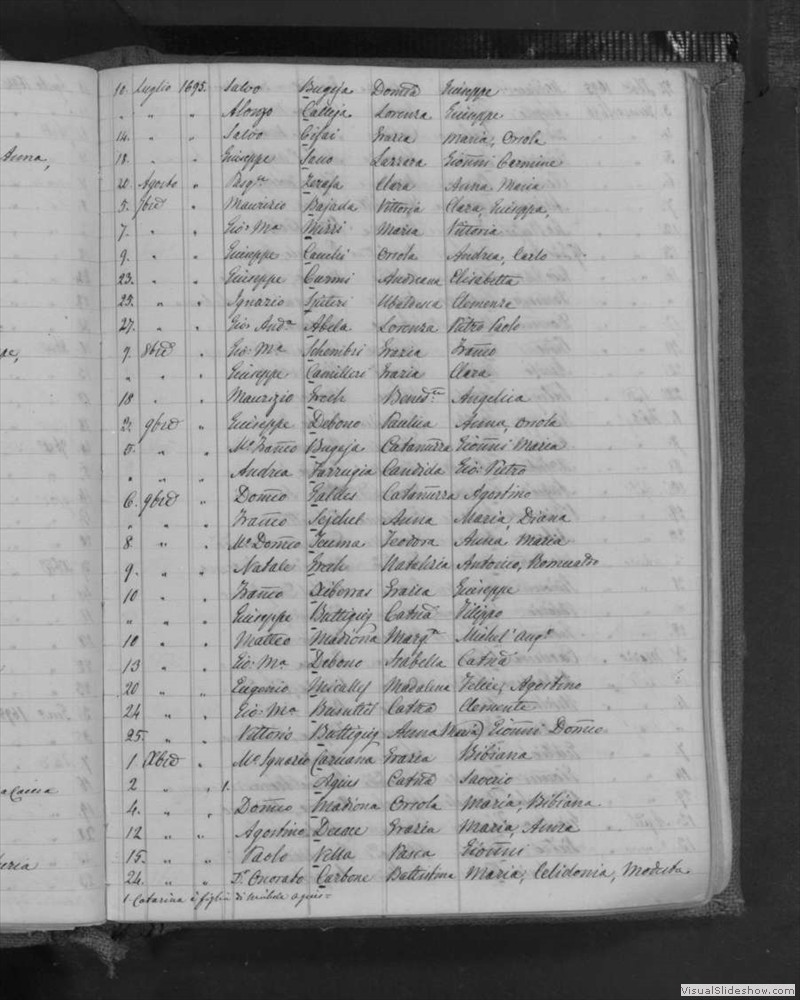 Anna,
10. Luglio 1695. Salvo Bugeja Domca Giuseppe
" " " Alonzo Calleja Lorenza Giuseppe
14. " " Salvo Cifai Grazia Maria, Orsola
18. " " Giuseppe Sano Giovni Carmine
20. Agosto " Zerafa Clara Anna Maria
5. 7bre " Maurizio Bajada Vittoria Clara, Giuseppa,
7. " " Gio: Ma Mizzi Maria Vittoria
9. " " Giuseppe Orsola Andrea, Carlo
23. " " Giuseppe Curmi Andreana Elisabetta
25. " " Ignazio Spiteri Ubaldesca Clemenza
27. " " Gio: Anda Abela Lorenza Pietro Paolo
9. 8bre " Gio: Ma Schembri Grazia Franco
" " " Giuseppe Camilleri Grazia Clara
18 " " Maurizio Grech Benedta Angelica
2. 9bre " Giuseppe Debono Paulica Anna, Orsola
5. " " Mo Franco Bugeja Catarinza Giovni Maria
" " " Andrea Farrugia Candida Gio: Pietro
6. 9bre " Domco Galdes Catarinza Agostino
" " " Franco Sejchel Anna Maria, Diana
8 " " Mo Domco Teuma Teodora Anna Maria
9. " " Natale Grech Natalizia Antonico, Romualdo
10 " " Franco Diborras Grazia Giuseppe
" " " Giuseppe Buttigieg Catna Filippo
10 " " Matteo Madiona Margta Michel' Ango
13 " " Gio: Ma Debono Isabella Catna
20 " " Eugenio Micallef Madalena Felice, Agostino
24 " " Gio: Ma Busuttil Catna Clemente
25. " " Vittorio Buttigieg Anna Maria) Giovni Domco
1 Xbre " Mo Ignazio Caruana Grazia Bibiana
2 " " 1. Agius Catna Saverio
4. " " Domco Madiona Orsola Maria, Bibiana
12 " " Agostino Grazia Maria, Anna
15. " " Paolo Vella Pasca Giovni
24. " " Dr Onorato Carbone Battistina Maria, Celidonia, Modesta
1 Catarina è figlia di
VisualSlideshow.com